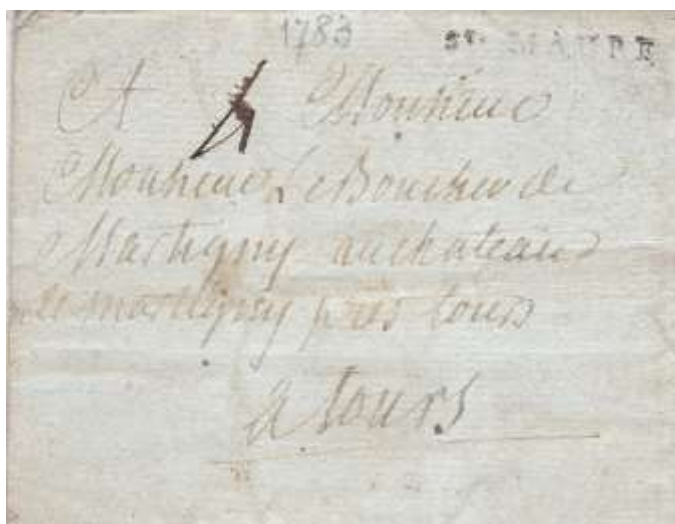 1783
St. MAURE
A Monsieur
Monsieur Le Boucher de
Martigny au chateau
de martigny près tours
a tours